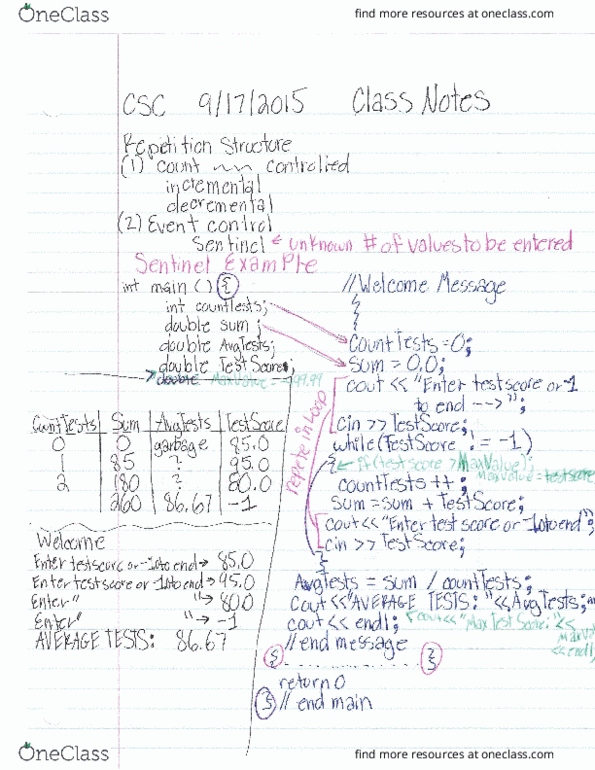 OneClass
find more resources at oneclass.com
CSC 9/17/2015 Class Notes
Repetition Structure
(1) Count controlled
incremental
decremental
(2) Event control
Sentinel ← unknown # of values to be entered
Sentinel Example
int main () {
int countTests;
double sum;
double AvgTests;
double TestScore;
double MaxValue = -999.99
CountTests Sum AvgTests TestScore
0 0 garbage 85.0
1 85 ? 95.0
2 180 ? 80.0
260 86.67 -1
Welcome
Enter testscore or -1 to end → 85.0
Enter testscore or -1 to end → 95.0
Enter " " → 80.0
Enter " " → -1
AVERAGE TESTS: 86.67
//Welcome Message
{
}
CountTests = 0;
Sum = 0.0;
cout << "Enter testscore or -1
to end -->";
cin >> TestScore;
while (TestScore != -1)
{ ← if (testscore > MaxValue);
MaxValue = testscore
countTests ++;
sum = sum + TestScore;
cout << "Enter test score or -1 to end";
cin >> TestScore;
}
repete in loop
AvgTests = sum / countTests;
Cout << "AVERAGE TESTS: " << AvgTests;
cout << endl; cout << "Max Test Score: " <<
MaxV
<< endl;
// end message
return 0
} // end main
OneClass
find more resources at oneclass.com